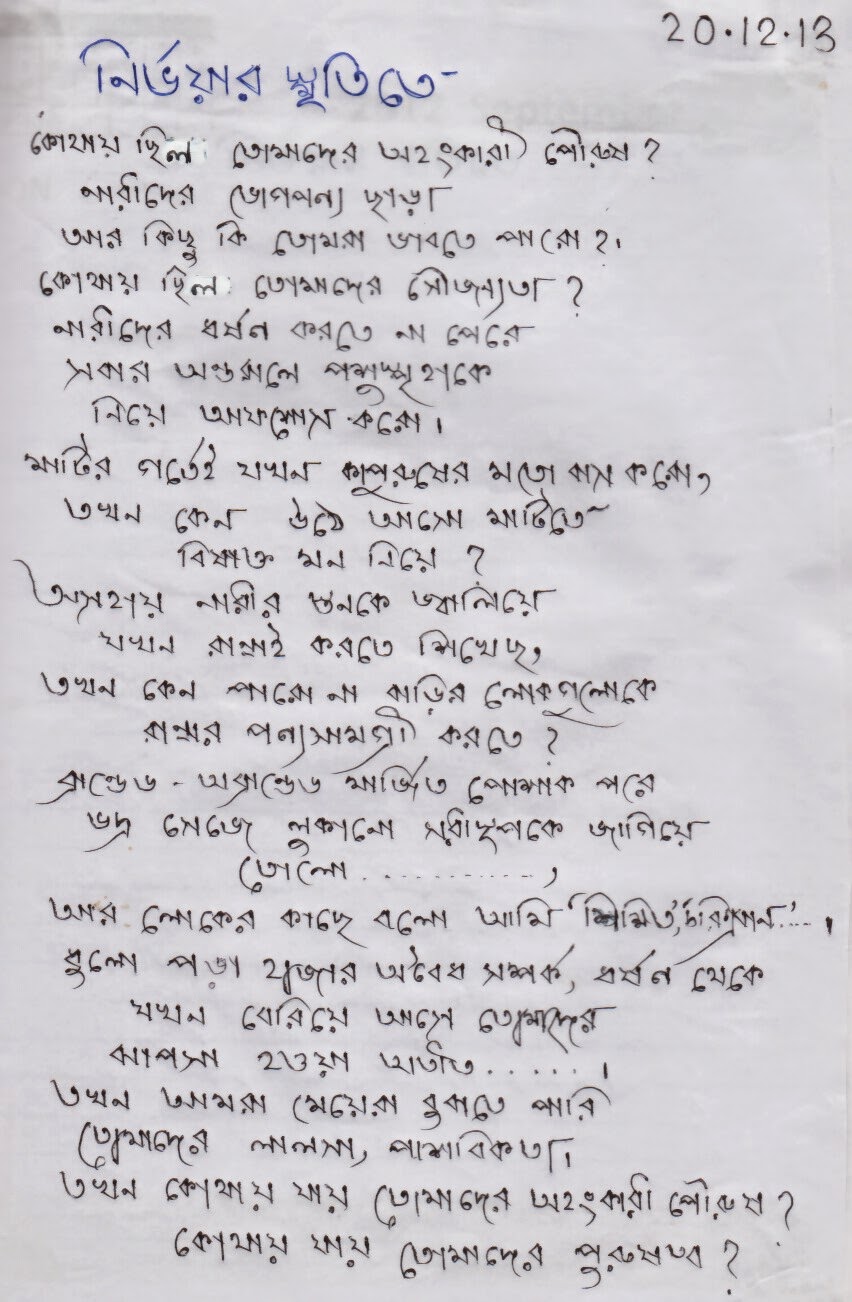 20.12.13
নির্ভয়ার স্মৃতিতে
কোথায় ছিল তোমাদের অহংকারী পৌরুষ ?
নারীদের ভোগপন্য ছাড়া
আর কিছু কি তোমরা ভাবতে পারো ?
কোথায় ছিল তোমাদের সৌজন্যতা ?
নারীদের ধর্ষন করতে না পেরে
সবার অন্তরালে পশুস্পৃহাকে
নিয়ে আফশোস করো।
মাটির গর্তেই যখন কাপুরুষের মতো বাস করো,
তখন কেন উঠে আসো মাটিতে
বিষাক্ত মন নিয়ে ?
অসহায় নারীর স্তনকে জ্বালিয়ে
যখন রান্নাই করতে শিখেছ,
তখন কেন পারো না বাড়ির লোকগুলোকে
রান্নার পন্যসামগ্রী করতে ?
ব্রান্ডেড - অব্রান্ডেড মার্জিত পোশাক পরে
ভদ্র সেজে লুকানো সরীসৃপকে জাগিয়ে
তোলো ............,
আর লোকের কাছে বলো আমি 'শিক্ষিত, চরিত্রবান'...।
ধুলো পড়া হাজার অবৈধ সম্পর্ক, ধর্ষন থেকে
যখন বেরিয়ে আসে তোমাদের
ঝাপসা হওয়া অতীত ......।
তখন আমরা মেয়েরা বুঝতে পারি
তোমাদের লালসা, পাশবিকতা।
তখন কোথায় যায় তোমাদের অহংকারী পৌরুষ ?
কোথায় যায় তোমাদের পুরুষত্ব ?